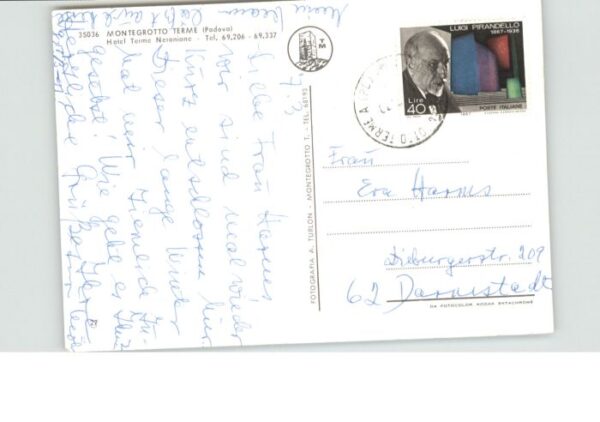 35036 MONTEGROTTO TERME (Padova)
Hotel Terme Neroniane - Tel. 69,206 - 69,337
TM
LUIGI PIRANDELLO
1867-1936
Lire
40
POSTE ITALIANE
1967
FOTOGRAFIA A. TURLON - MONTEGROTTO T. - TEL. 68192
7.3
Liebe Frau Harms,
wir sind mal wieder
kurz entschlossen hier.
Dieser lange Winter
hat mir ziemlich zu-
gesetzt! Wie geht es
Herzliche Grüße
Frau
Eva Harms
Dieburgerstr. 209
62 Darmstadt
DA FOTOCOLOR KODAK EKTACHROME